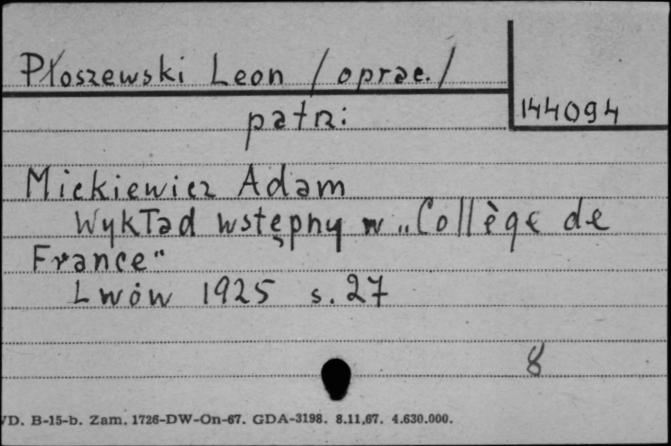 Płoszewski Leon /oprac./
144094
patrz:
Mickiewicz Adam
Wykład wstępny w „Collège de
France"
Lwów 1925 s. 27
8
VD. B-15-b. Zam. 1726-DW-On-67. GDA-3198. 8.11.67. 4.630.000.